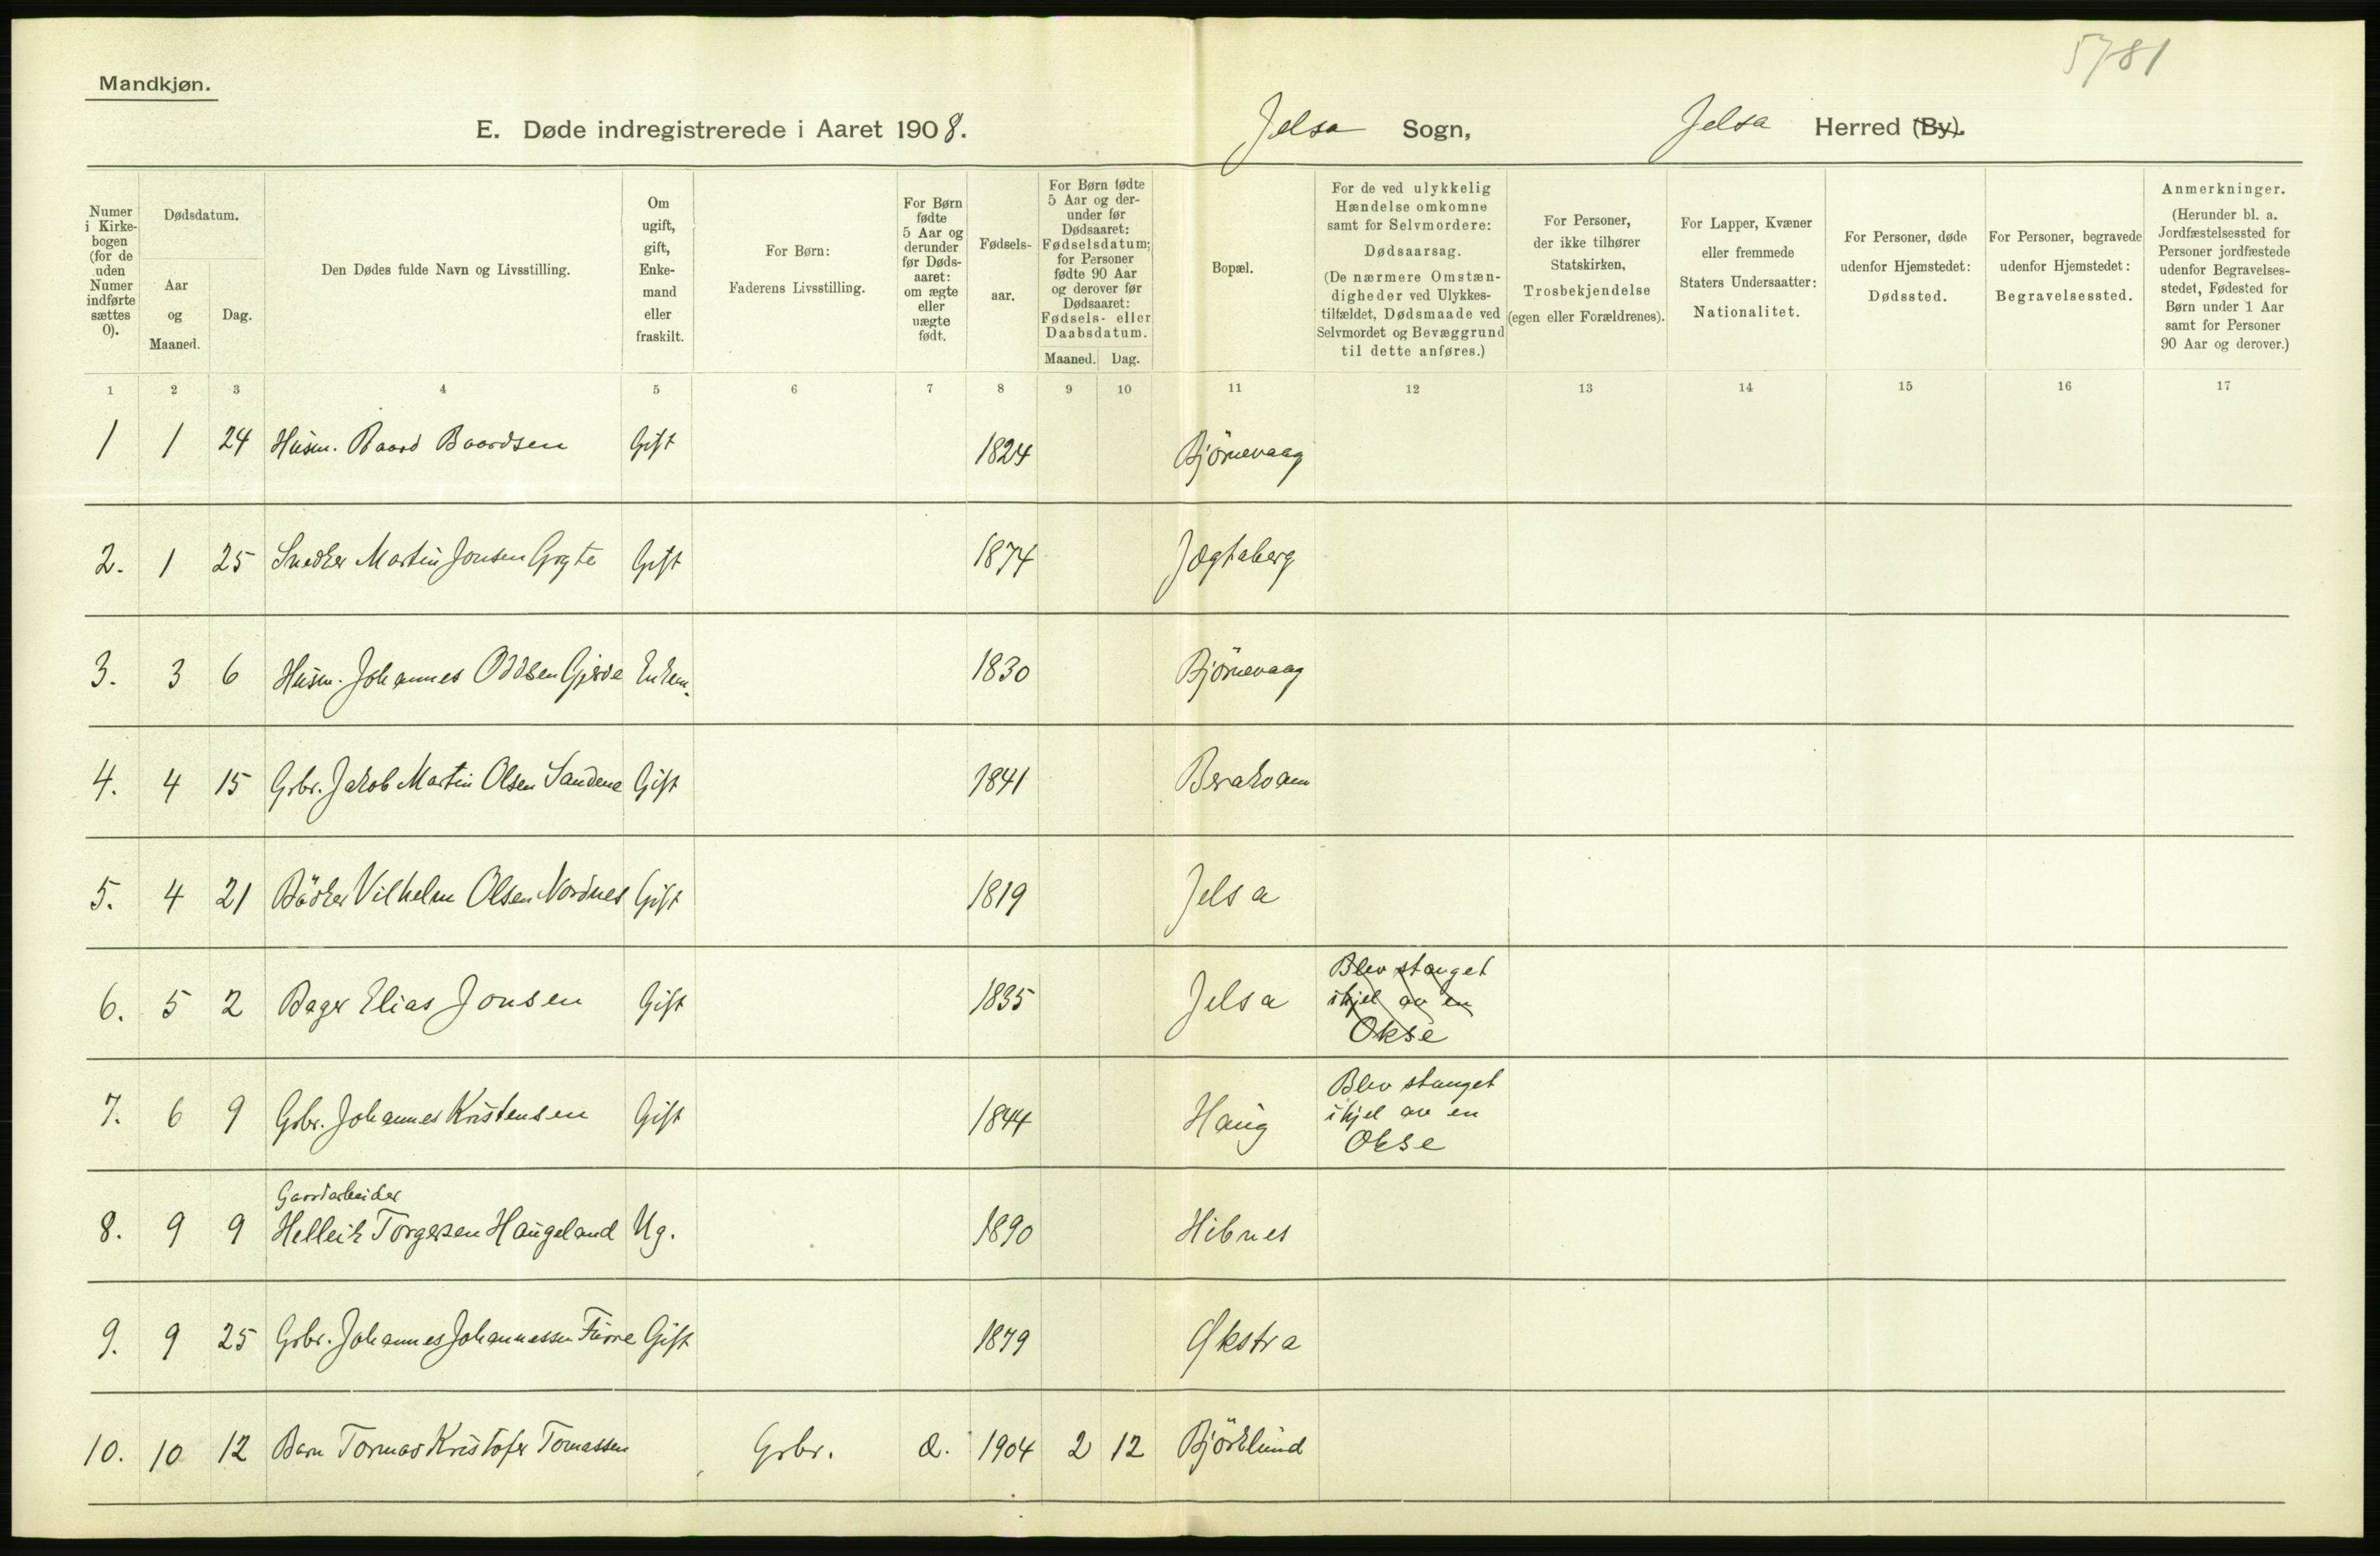 5781
Mandkjøn.
E. Døde indregistrerede i Aaret 1908. Jelsa Sogn, Jelsa Herred (By).
Numer i Kirke-bogen (for de uden Numer indførte sættes 0).
Dødsdatum.
Aar og Maaned.
Dag.
Den Dødes fulde Navn og Livsstilling.
Om ugift, gift, Enke-mand eller fraskilt.
For Børn:
Faderens Livsstilling.
For Børn fødte 5 Aar og derunder før Døds-aaret: om ægte eller uægte født.
Fødsels-aar.
For Børn fødte 5 Aar og der-under før Dødsaaret: Fødselsdatum; for Personer fødte 90 Aar og derover før Dødsaaret: Fødsels- eller Daabsdatum.
Maaned. Dag.
Bopæl.
For de ved ulykkelig Hændelse omkomne samt for Selvmordere:
Dødsaarsag.
(De nærmere Omstæn-digheder ved Ulykkes-tilfældet, Dødsmaade ved Selvmordet og Bevæggrund til dette anføres.)
For Personer, der ikke tilhører Statskirken,
Trosbekjendelse
(egen eller Forældrenes).
For Lapper, Kvæner eller fremmede Staters Undersaatter:
Nationalitet.
For Personer, døde udenfor Hjemstedet:
Dødssted.
For Personer, begravede udenfor Hjemstedet:
Begravelsessted.
Anmerkninger.
(Herunder bl. a. Jordfæstelsessted for Personer jordfæstede udenfor Begravelses-stedet, Fødested for Børn under 1 Aar samt for Personer 90 Aar og derover.)
1 2 3 4 5 6 7 8 9 10 11 12 13 14 15 16 17
1 1 24 Husm. Baard Baardsen Gift 1824 Björnevaag
2. 1 25 Snedker Martin Jonsen Gryte Gift 1874 Jægtaberg
3. 3 6 Husm. Johannes Oddsen Gjerde Enkem. 1830 Björnevaag
4. 4 15 Grbr. Jakob Martin Olsen Sandene Gift 1841 Berakvam
5. 4 21 Bödker Vilhelm Olsen Nordnes Gift 1819 Jelsa
6. 5 2 Bager Elias Jonsen Gift 1835 Jelsa Blev stanget
ihjel av en
Okse
7. 6 9 Grbr. Johannes Kristensen Gift 1844 Haug Blev stanget
ihjel av en
Okse
Gaardarbeider
8. 9 9 Helleik Torgersen Haugeland Ug. 1890 Hibnes
9. 9 25 Grbr. Johannes Johannessen Furre Gift 1879 Økstra
10. 10 12 Barn Tormas Kristofer Tomassen Grbr. Æ. 1904 2 12 Björklund